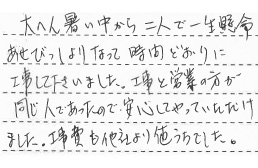 大へん暑い中から二人で一生懸命
あせびっしょりなって時間どおりに
工事して下さいました。工事と営業の方が
同じ人であったので安心してやっていただけ
ました。工事費も他社より値うちでした。